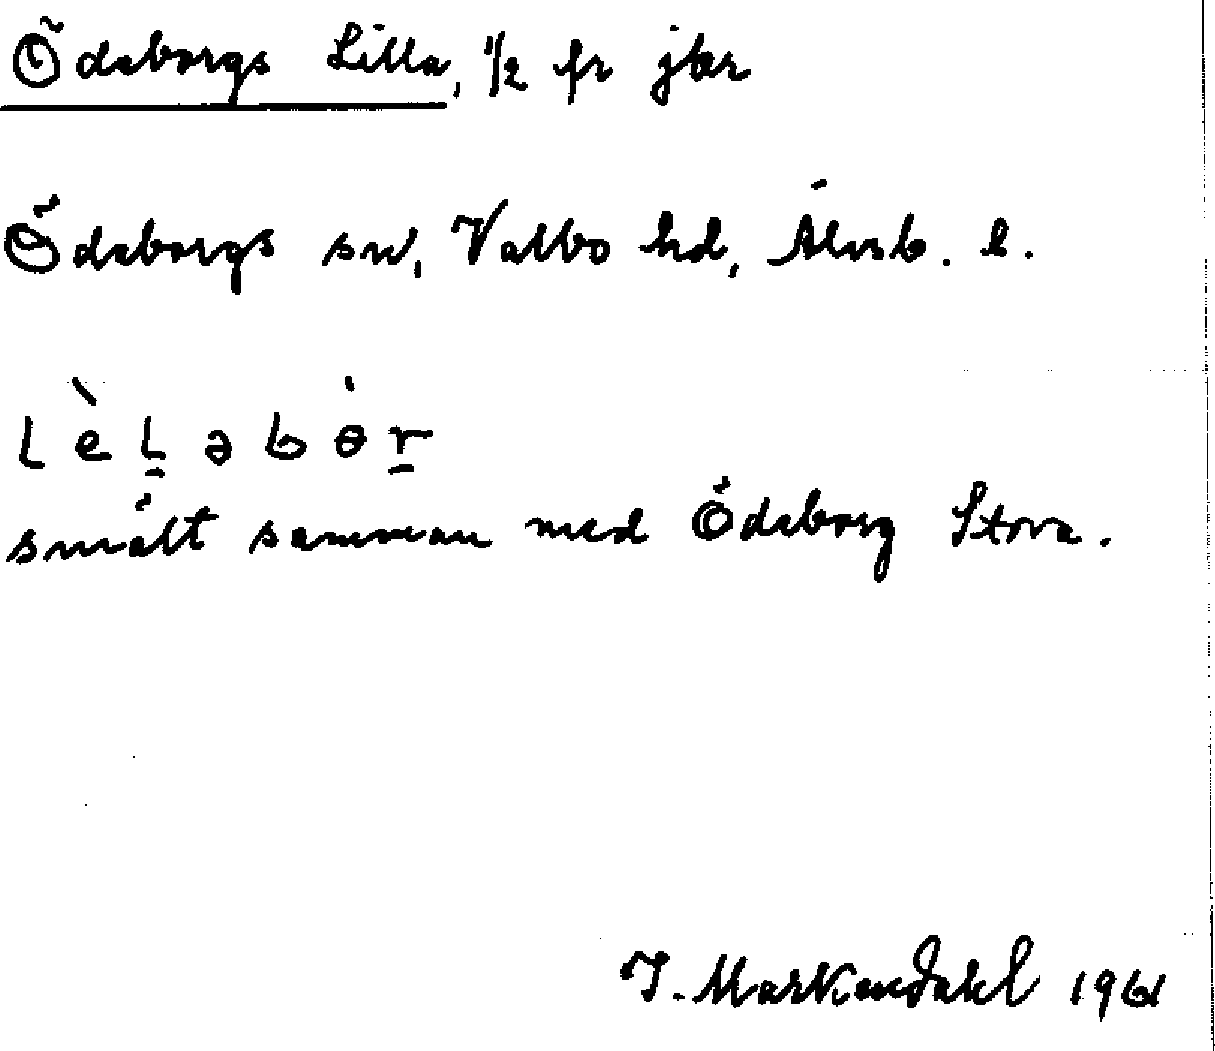 Ödeborgs Lilla, 1/2 fr jbr
Ödeborgs sn, Valbo hd, Älvsb. l.
lèḻəbɵ̀ṟ
smält samman med Ödeborg Stora.
J. Markendahl 1961